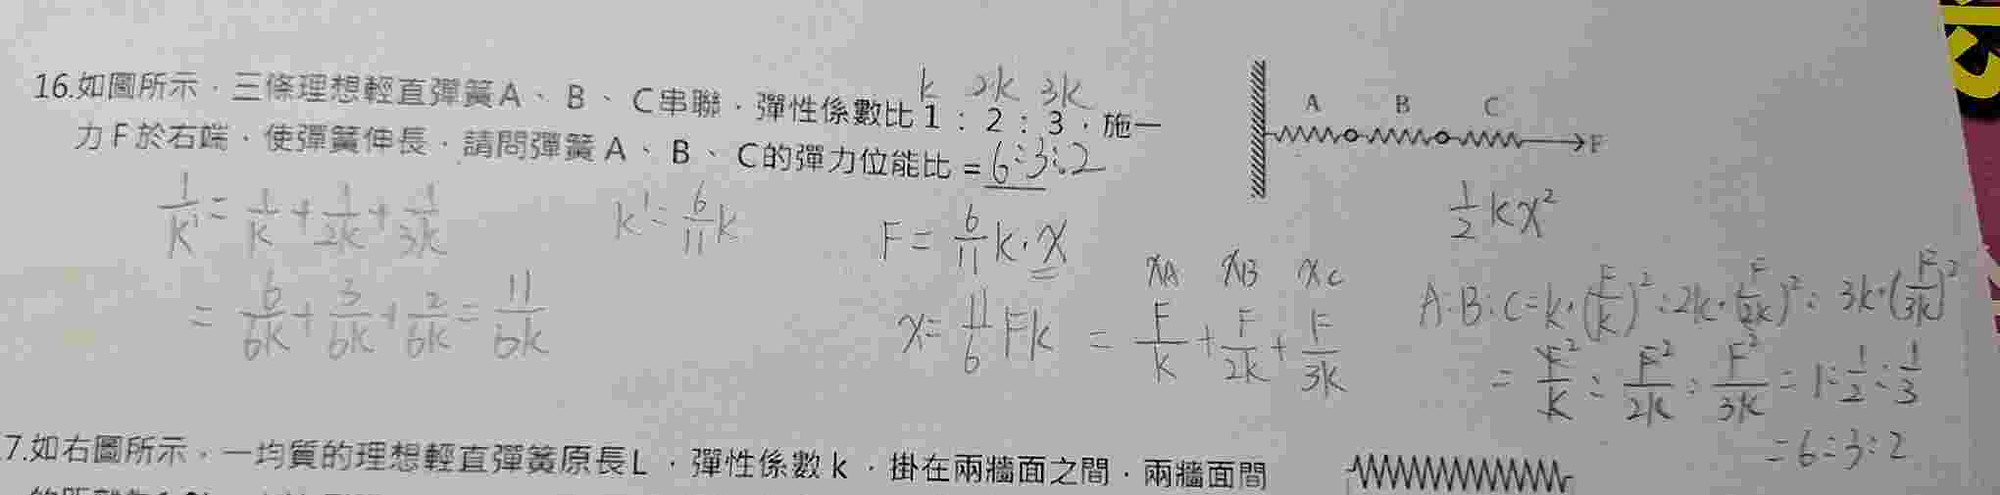 k 2k 3k
16.如圖所示，三條理想輕直彈簧A、B、C串聯，彈性係數比1：2：3，施一
力F於右端，使彈簧伸長，請問彈簧A、B、C的彈力位能比 = 6:3:2
A B C
F
1/k' = 1/k + 1/2k + 1/3k
= 6/6k + 3/6k + 2/6k = 11/6k
k' = 6/11 k
F = 6/11 k · x
xA xB xC
x = 11/6 Fk = F/k + F/2k + F/3k
1/2 kx²
A:B:C = k·(F/k)² : 2k·(F/2k)² : 3k·(F/3k)²
= F²/k : F²/2k : F²/3k = 1 : 1/2 : 1/3
= 6:3:2
7.如右圖所示，一均質的理想輕直彈簧原長L，彈性係數k，掛在兩牆面之間，兩牆面間